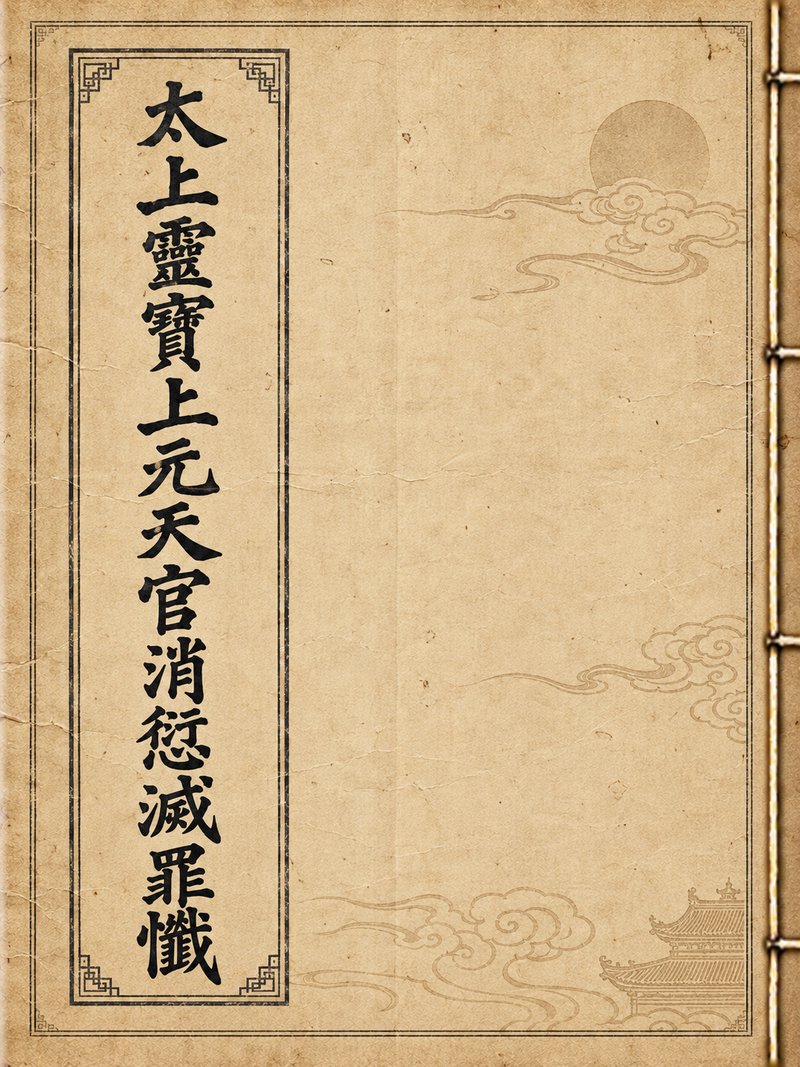 太上靈寶上元天官消愆滅罪懺